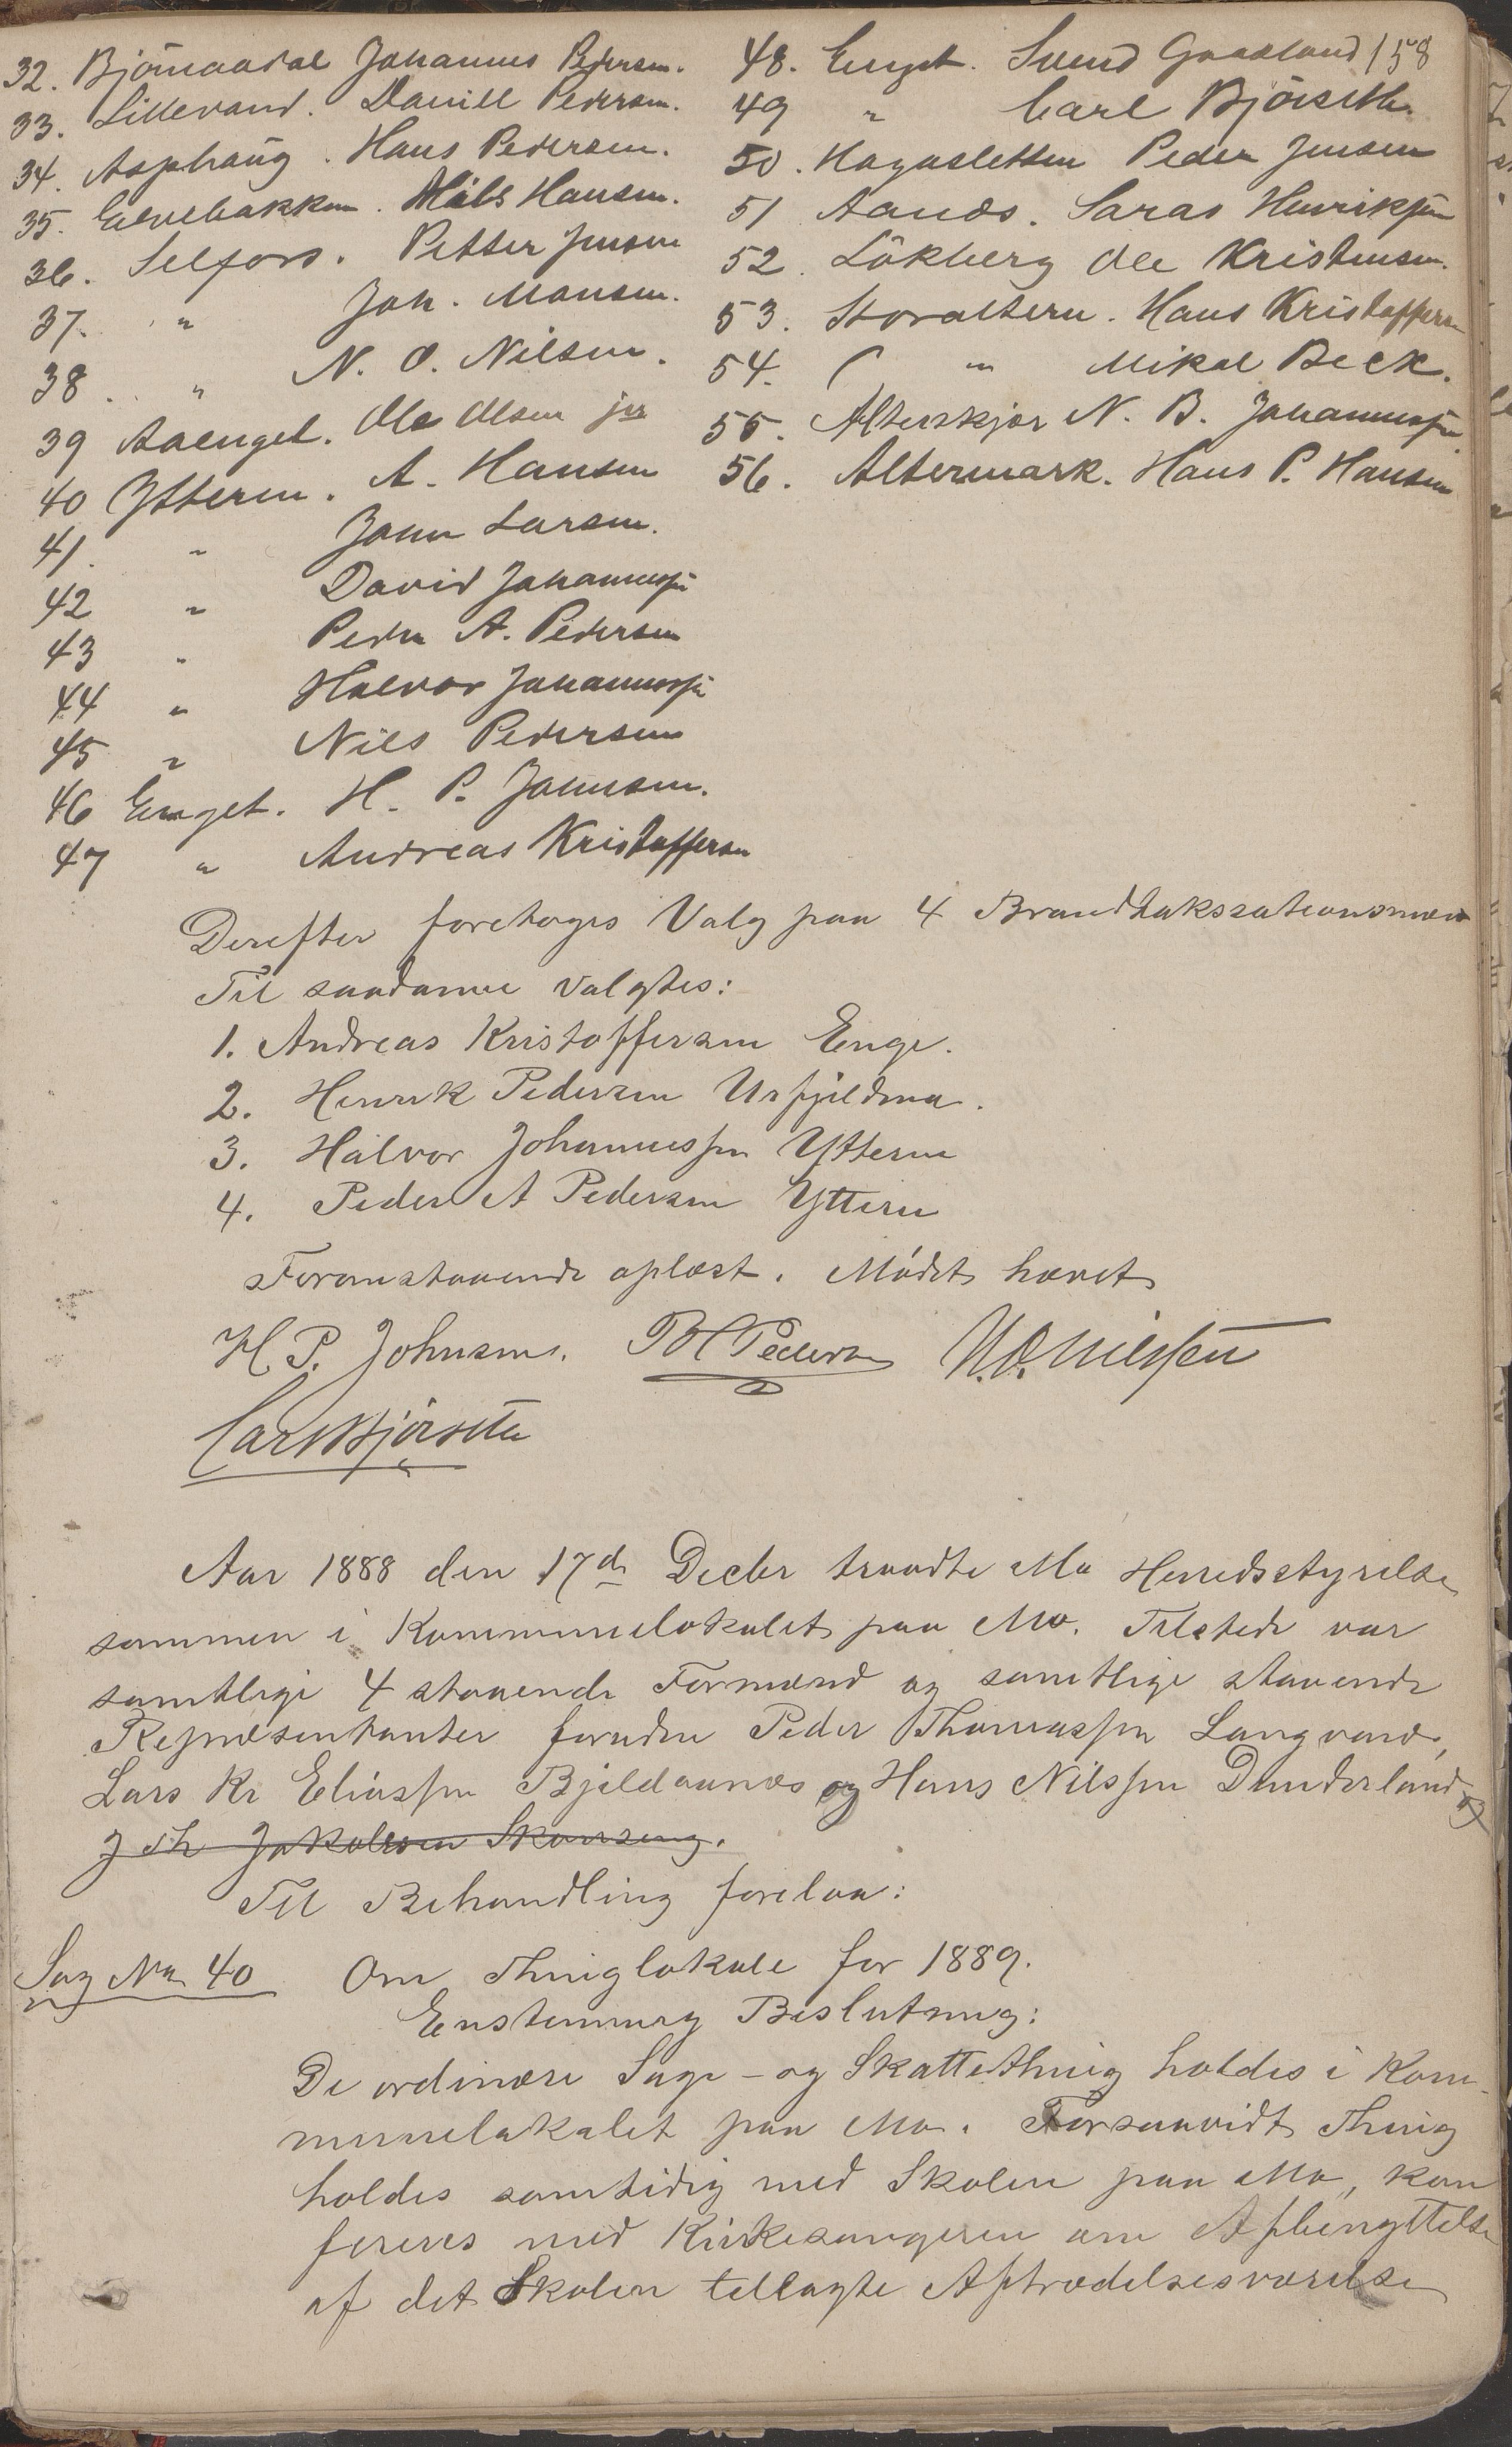 158
32. Bjørnaadal Johannes Pedersen.
33. Lillevand. Daniel Pedersen.
34. Asphaug. Hans Pedersen.
35. Elvebakken. Nils Hansen.
36. Selfors. Petter Jensen
37. " Joh. Monsen.
38. " N. O. Nilsen.
39 Aaenget. Ole Olsen jr
40 Ytteren. A. Hansen
41. " John Larsen.
42 " David Johannessen
43 " Peder A. Pedersen
44 " Halvor Johannessen
45 " Nils Pedersen
46 Enget. H. P. Johnsen.
47 " Andreas Kristoffersen
48. Enget. Svend Graaland
49 " Carl Bjørseth.
50. Hagasletten Peder Jensen
51 Aanæs. Saras Henriksen
52. Lökberg Ole Kristensen.
53. Storalteren. Hans Kristoffersen
54. " Mikal Beck.
55. Alterskjær N. B. Johannessen
56. Altermark. Hans P. Hansen
Derefter foretoges Valg paa 4 Brandtakssationsmæn
Til saadanne valgtes:
1. Andreas Kristoffersen Enge.
2. Henrik Pedersen Urfjeldmo.
3. Halvor Johannessen Ytteren
4. Peder A Pedersen Ytteren
Foranstaaende oplæst. Mødet hævet
H. P. Johnsen. PHPedersen N.O. Nilssen
Carl Bjørseth
Aar 1888 den 17de Decbr traadte Mo Herredsstyrelse
sammen i Kommunelokalet paa Mo. Tilstede var
samtlige 4 staaende Formænd og samtlige staaende
Repræsentanter foruden Peder Thomassen Langvand,
Lars Kr Eliassen Bjeldaanæs og Hans Nilssen Dunderland
J Th Jakobsen Skonseng.
Til Behandling forelaa:
Sag No 40 Om Thinglokale for 1889.
Enstemmig Beslutning:
De ordinære Sage- og Skattething holdes i Kom-
munelokalet paa Mo. Forsaavidt Thing
holdes samtidig med Skolen paa Mo, kon
fereres med Kirkesangeren om Afbenyttelse
af det Skolen tillagte Aftrædelsesværelse